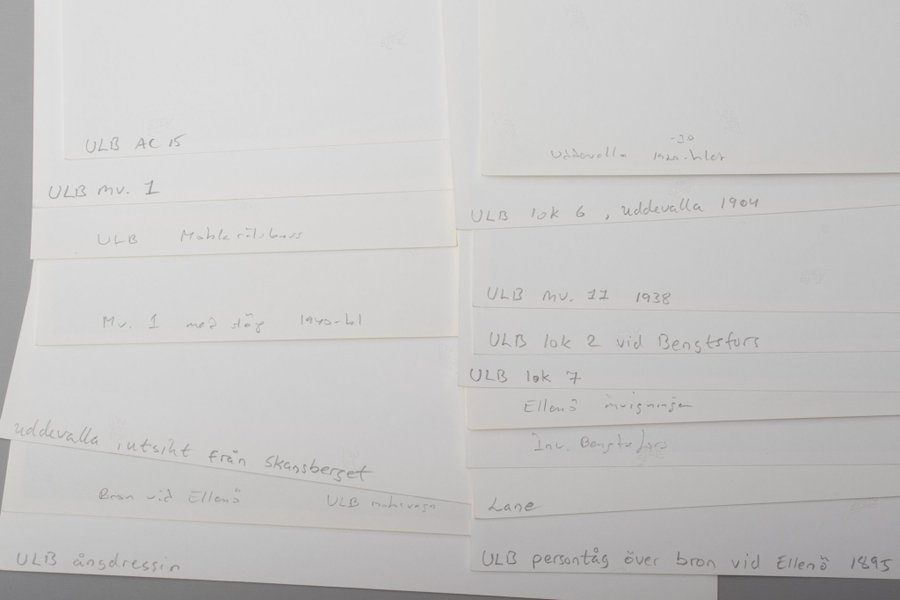 ULB AC 15
ULB mv. 1
ULB
Mv. 1 med tåg 1940-tal
Uddevalla, utsikt från Skansberget
Bron vid Ellenö ULB motorvagn
ULB ångdressin
-30
Uddevalla 1920-talet
ULB lok 6, Uddevalla 1904
ULB mv. 11 1938
ULB lok 2 vid Bengtsfors
ULB lok 7
Ellenö invigningen
Inv. Bengtsfors
Lane
ULB persontåg över bron vid Ellenö 1895